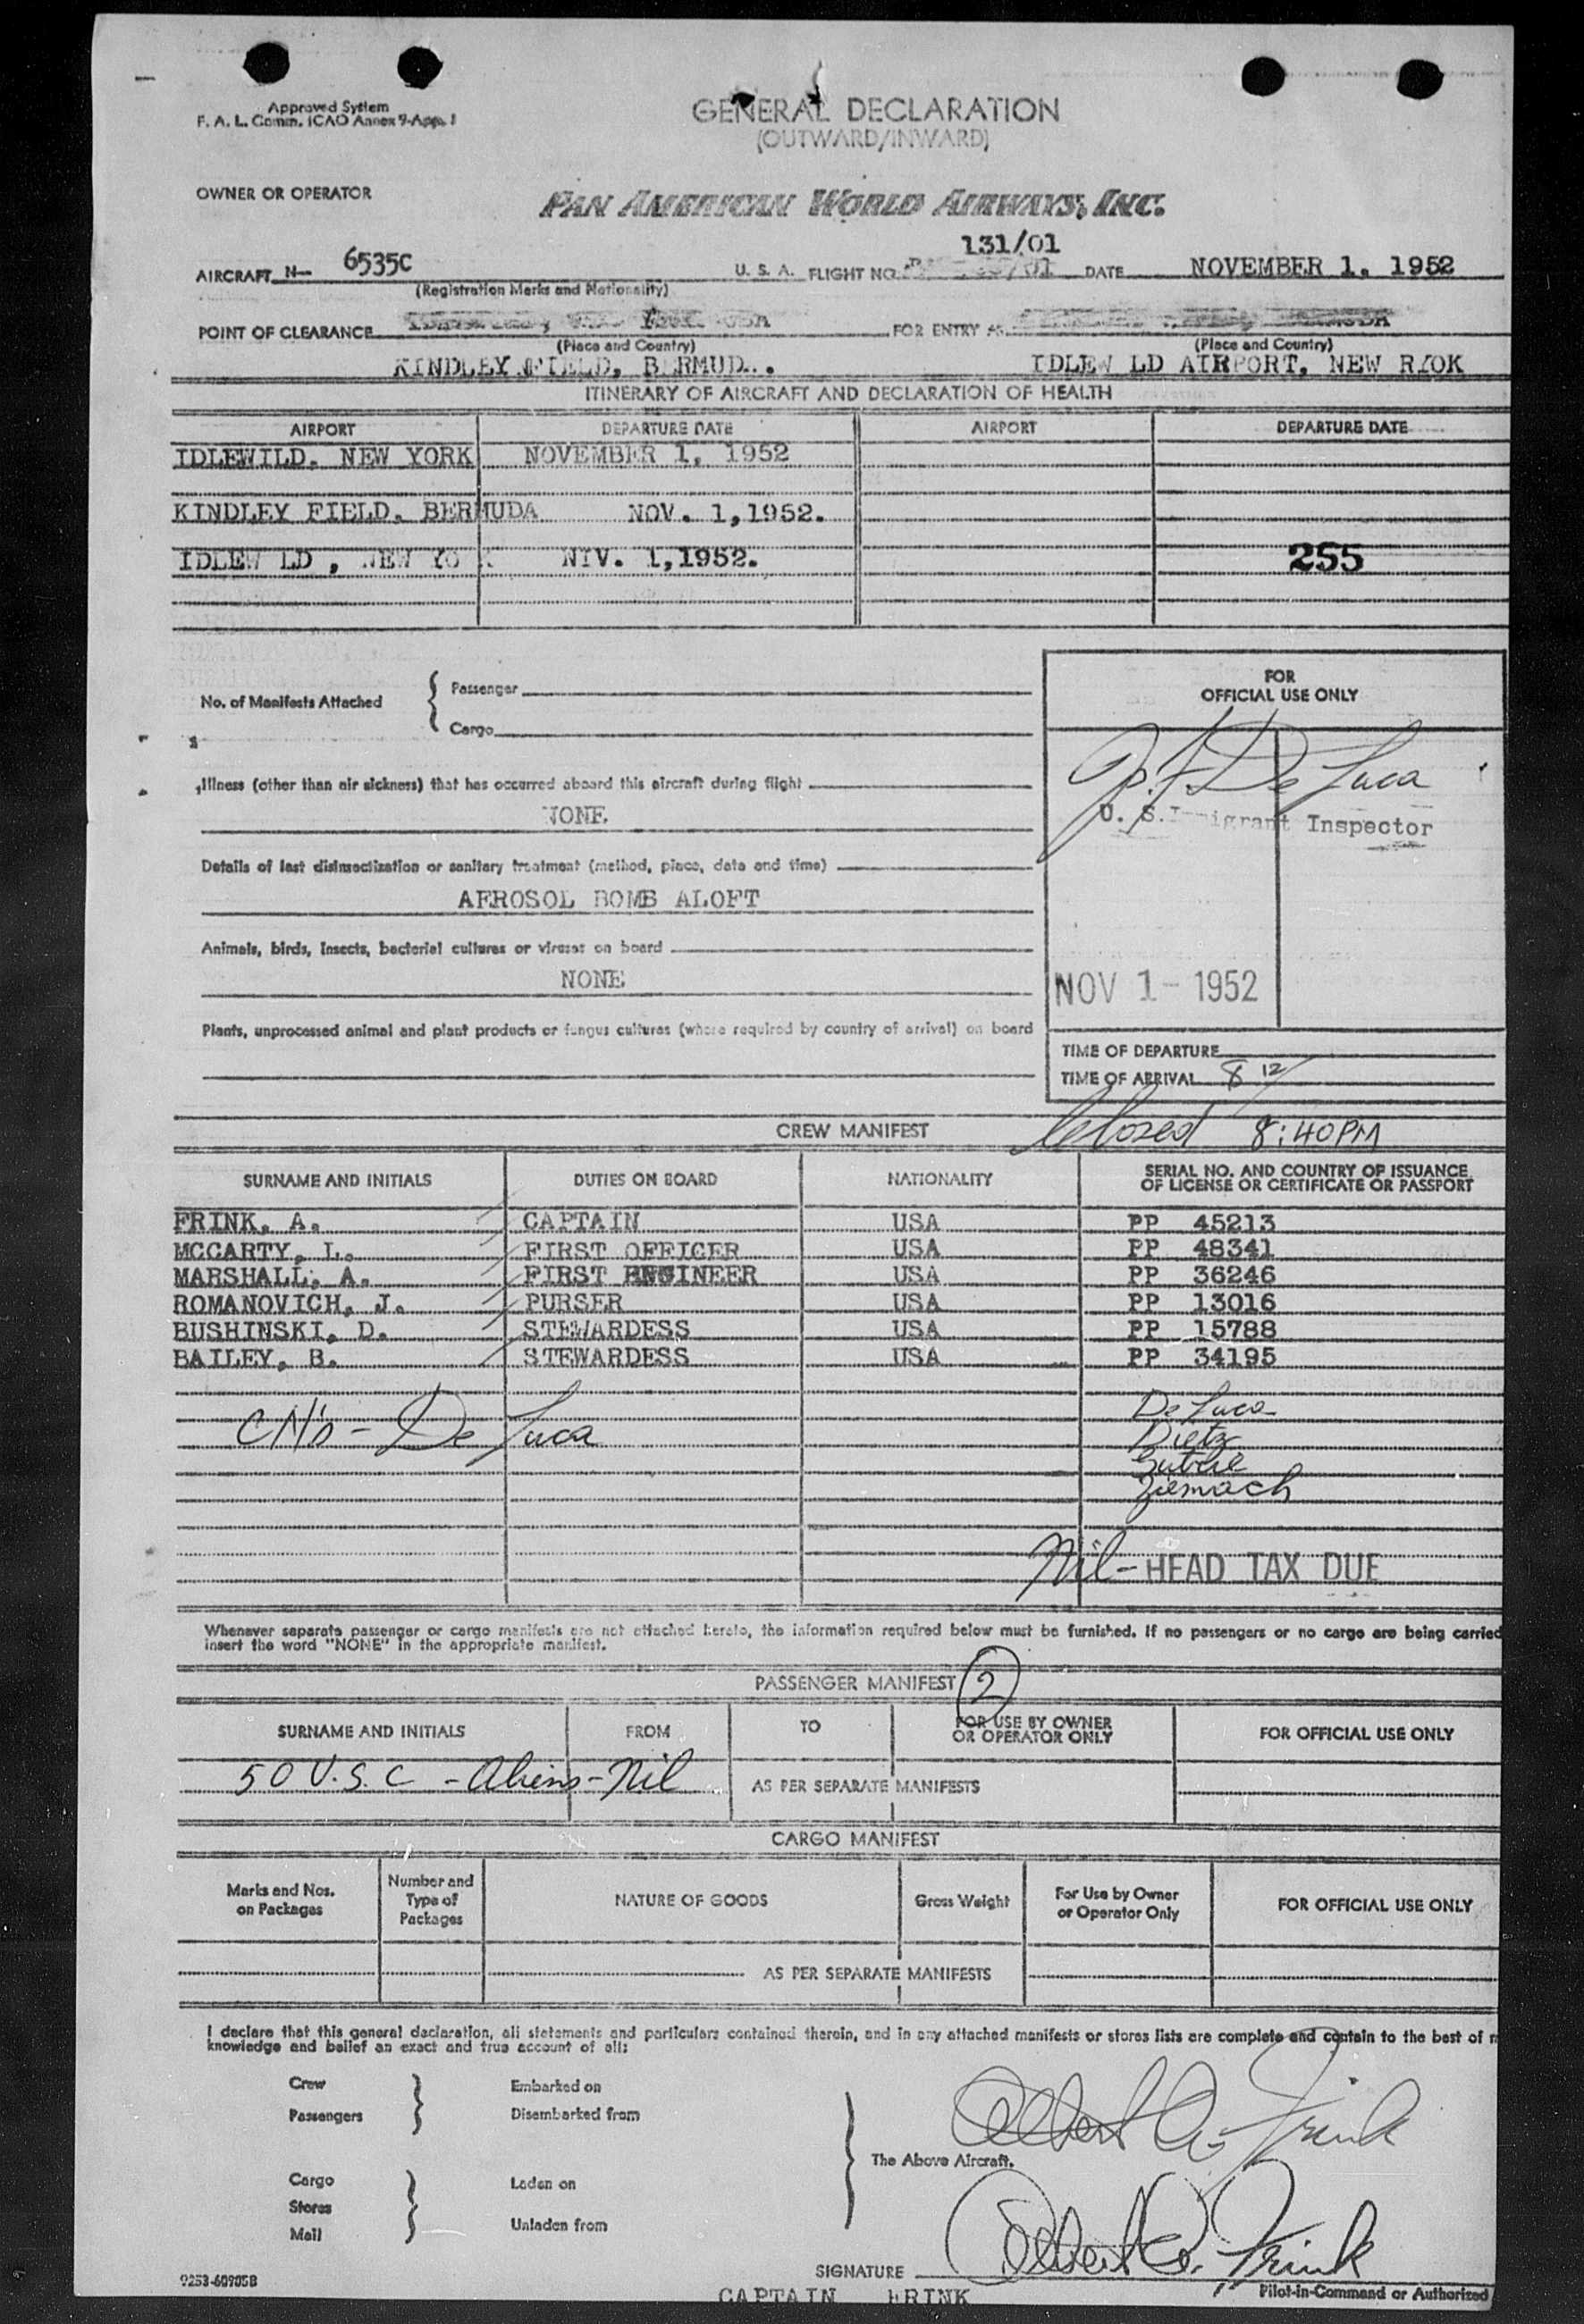 Approved System
F. A. L. Comm. ICAO Annex 9-App. 1
GENERAL DECLARATION
(OUTWARD/INWARD)
OWNER OR OPERATOR
PAN AMERICAN WORLD AIRWAYS, INC.
131/01
AIRCRAFT N- 6535C U. S. A. FLIGHT NO. DATE NOVEMBER 1, 1952
(Registration Marks and Nationality)
POINT OF CLEARANCE FOR ENTRY AT
(Place and Country) (Place and Country)
KINDLEY FIELD, BERMUD.. IDLEW LD AIRPORT, NEW R/OK
ITINERARY OF AIRCRAFT AND DECLARATION OF HEALTH
AIRPORT DEPARTURE DATE AIRPORT DEPARTURE DATE
IDLEWILD, NEW YORK NOVEMBER 1, 1952
KINDLEY FIELD, BERMUDA NOV. 1,1952.
IDLEW LD , NEW YO K NIV. 1,1952.
255
No. of Manifests Attached { Passenger
Cargo
FOR
OFFICIAL USE ONLY
P. F. De Luca
U. S. Immigrant Inspector
Illness (other than air sickness) that has occurred aboard this aircraft during flight
NONE
Details of last disinsectization or sanitary treatment (method, place, date and time)
AEROSOL BOMB ALOFT
Animals, birds, insects, bacterial cultures or viruses on board
NONE
NOV 1- 1952
Plants, unprocessed animal and plant products or fungus cultures (where required by country of arrival) on board
TIME OF DEPARTURE
TIME OF ARRIVAL 8 12/
CREW MANIFEST
Closed 8:40PM
SURNAME AND INITIALS DUTIES ON BOARD NATIONALITY SERIAL NO. AND COUNTRY OF ISSUANCE
OF LICENSE OR CERTIFICATE OR PASSPORT
FRINK, A. CAPTAIN USA PP 45213
MCCARTY, L. FIRST OFFICER USA PP 48341
MARSHALL, A. FIRST ENGINEER USA PP 36246
ROMANOVICH, J. PURSER USA PP 13016
BUSHINSKI, D. STEWARDESS USA PP 15788
BAILEY, B. STEWARDESS USA PP 34195
De Luca
CM's - De Luca
Dietz
Ziemach
Nil - HEAD TAX DUE
Whenever separate passenger or cargo manifests are not attached hereto, the information required below must be furnished. If no passengers or no cargo are being carried
insert the word "NONE" in the appropriate manifest.
PASSENGER MANIFEST 2
SURNAME AND INITIALS FROM TO FOR USE BY OWNER
OR OPERATOR ONLY FOR OFFICIAL USE ONLY
50 U.S.C - Aliens - Nil AS PER SEPARATE MANIFESTS
CARGO MANIFEST
Marks and Nos.
on Packages
Number and
Type of
Packages
NATURE OF GOODS
Gross Weight
For Use by Owner
or Operator Only
FOR OFFICIAL USE ONLY
AS PER SEPARATE MANIFESTS
I declare that this general declaration, all statements and particulars contained therein, and in any attached manifests or stores lists are complete and contain to the best of m
knowledge and belief an exact and true account of all:
Crew Embarked on
Passengers Disembarked from
Albert A. Frink
The Above Aircraft.
Cargo Laden on
Stores
Mail Unladen from
SIGNATURE Albert A. Frink
9253-60905B
CAPTAIN FRINK
Pilot-in-Command or Authorized